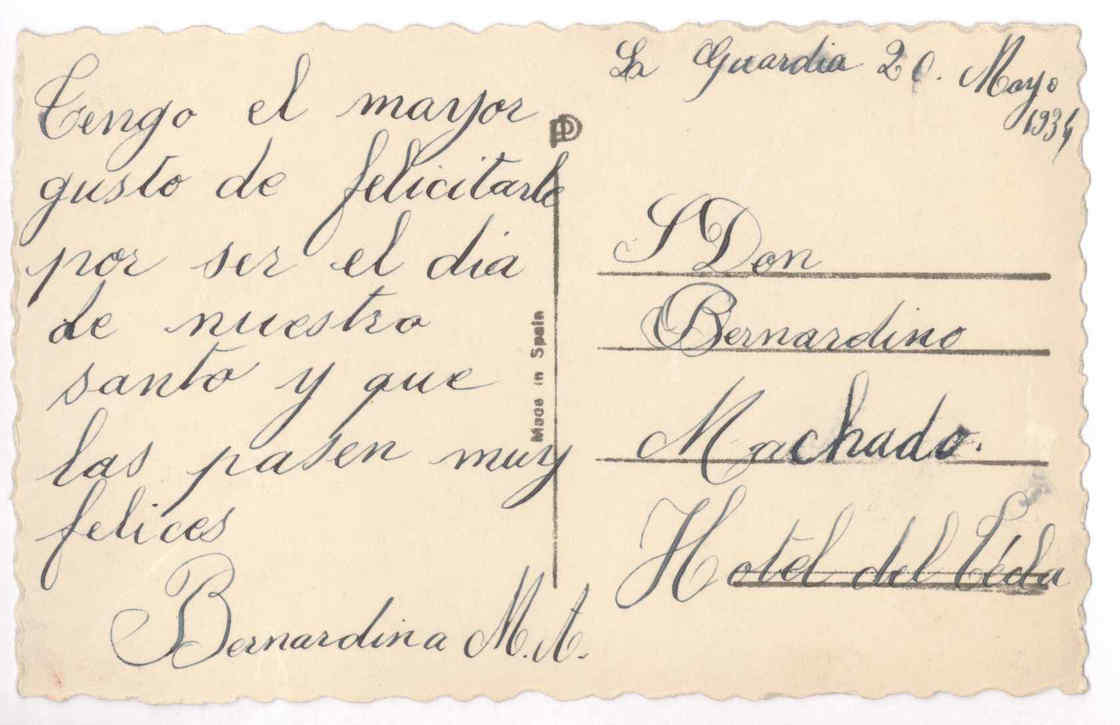 Tengo el mayor
gusto de felicitarle
por ser el dia
de nuestro
santo y que
las pasen muy
felices
Bernardina M. A.
Made in Spain
La Guardia 20. Mayo
1934
S Don
Bernardino
Machado.
Hotel del